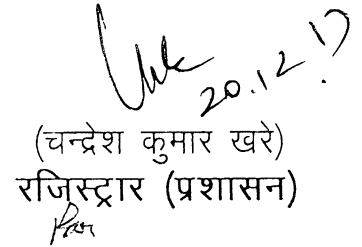 20.12.17
(चन्द्रेश कुमार खरे)
रजिस्ट्रार (प्रशासन)